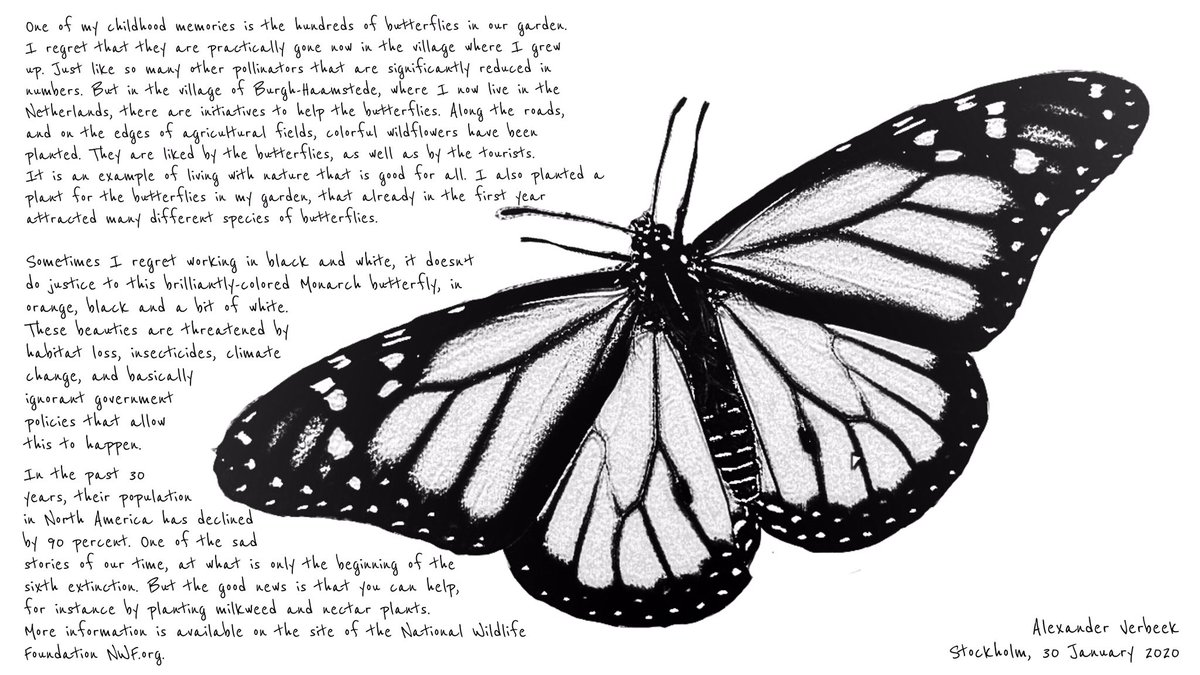 One of my childhood memories is the hundreds of butterflies in our garden.
I regret that they are practically gone now in the village where I grew
up. Just like so many other pollinators that are significantly reduced in
numbers. But in the village of Burgh-Haamstede, where I now live in the
Netherlands, there are initiatives to help the butterflies. Along the roads,
and on the edges of agricultural fields, colorful wildflowers have been
planted. They are liked by the butterflies, as well as by the tourists.
It is an example of living with nature that is good for all. I also planted a
plant for the butterflies in my garden, that already in the first year
attracted many different species of butterflies.
Sometimes I regret working in black and white, it doesn't
do justice to this brilliantly-colored Monarch butterfly, in
orange, black and a bit of white.
These beauties are threatened by
habitat loss, insecticides, climate
change, and basically
ignorant government
policies that allow
this to happen.
In the past 30
years, their population
in North America has declined
by 90 percent. One of the sad
stories of our time, at what is only the beginning of the
sixth extinction. But the good news is that you can help,
for instance by planting milkweed and nectar plants.
More information is available on the site of the National Wildlife
Foundation NWF.org.
Alexander Verbeek
Stockholm, 30 January 2020